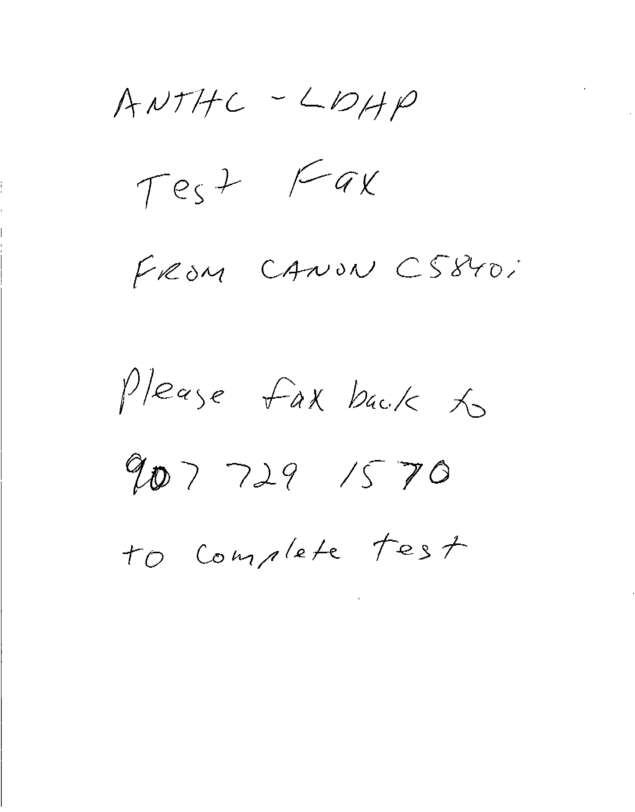 ANTHC - LDHP
Test Fax
FROM CANON C5840i
Please fax back to
907 729 1570
to complete test